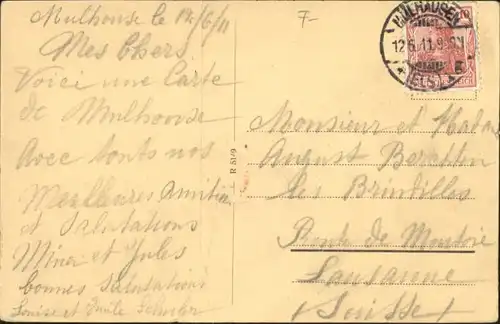 Mulhouse le 12/6/11
7-
Mes Chers
Voici une Carte
de Mulhouse
Avec touts nos
Meilleures Amitiés
et Salutations
et Jules
bonnes Salutations
Louise et Emile
R 5179
MÜLHAUSEN
12.6.11.9-
(ELS.)
Monsieur et Madame
August
Les
de
Lausanne
(Suisse)